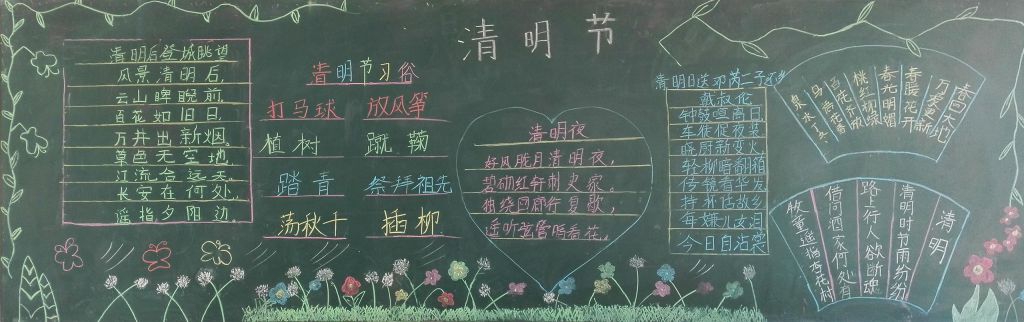 清明节
清明后登城眺望
风景清明后,
云山睥睨前.
百花如旧日,
万井出新烟.
草色无空地,
江流合远天.
长安在何处,
遥指夕阳边.
清明节习俗
打马球 放风筝
植树 蹴鞠
踏青 祭拜祖先
荡秋千 插柳
清明夜
好风胧月清明夜,
碧砌红轩刺史家.
独绕回廊行复歇,
遥听弦管暗看花.
清明日送邓芮二子还乡
戴叔伦
钟鼓喧离日
车徒促夜装
晓厨新变火
轻柳暗翻霜
传镜看华发
持杯话故乡
每嫌儿女泪
今日自沾裳
春回大地
万象更新
春暖花开
春光明媚
桃红柳绿
百花齐放
鸟语花香
清明
清明时节雨纷纷
路上行人欲断魂
借问酒家何处有
牧童遥指杏花村